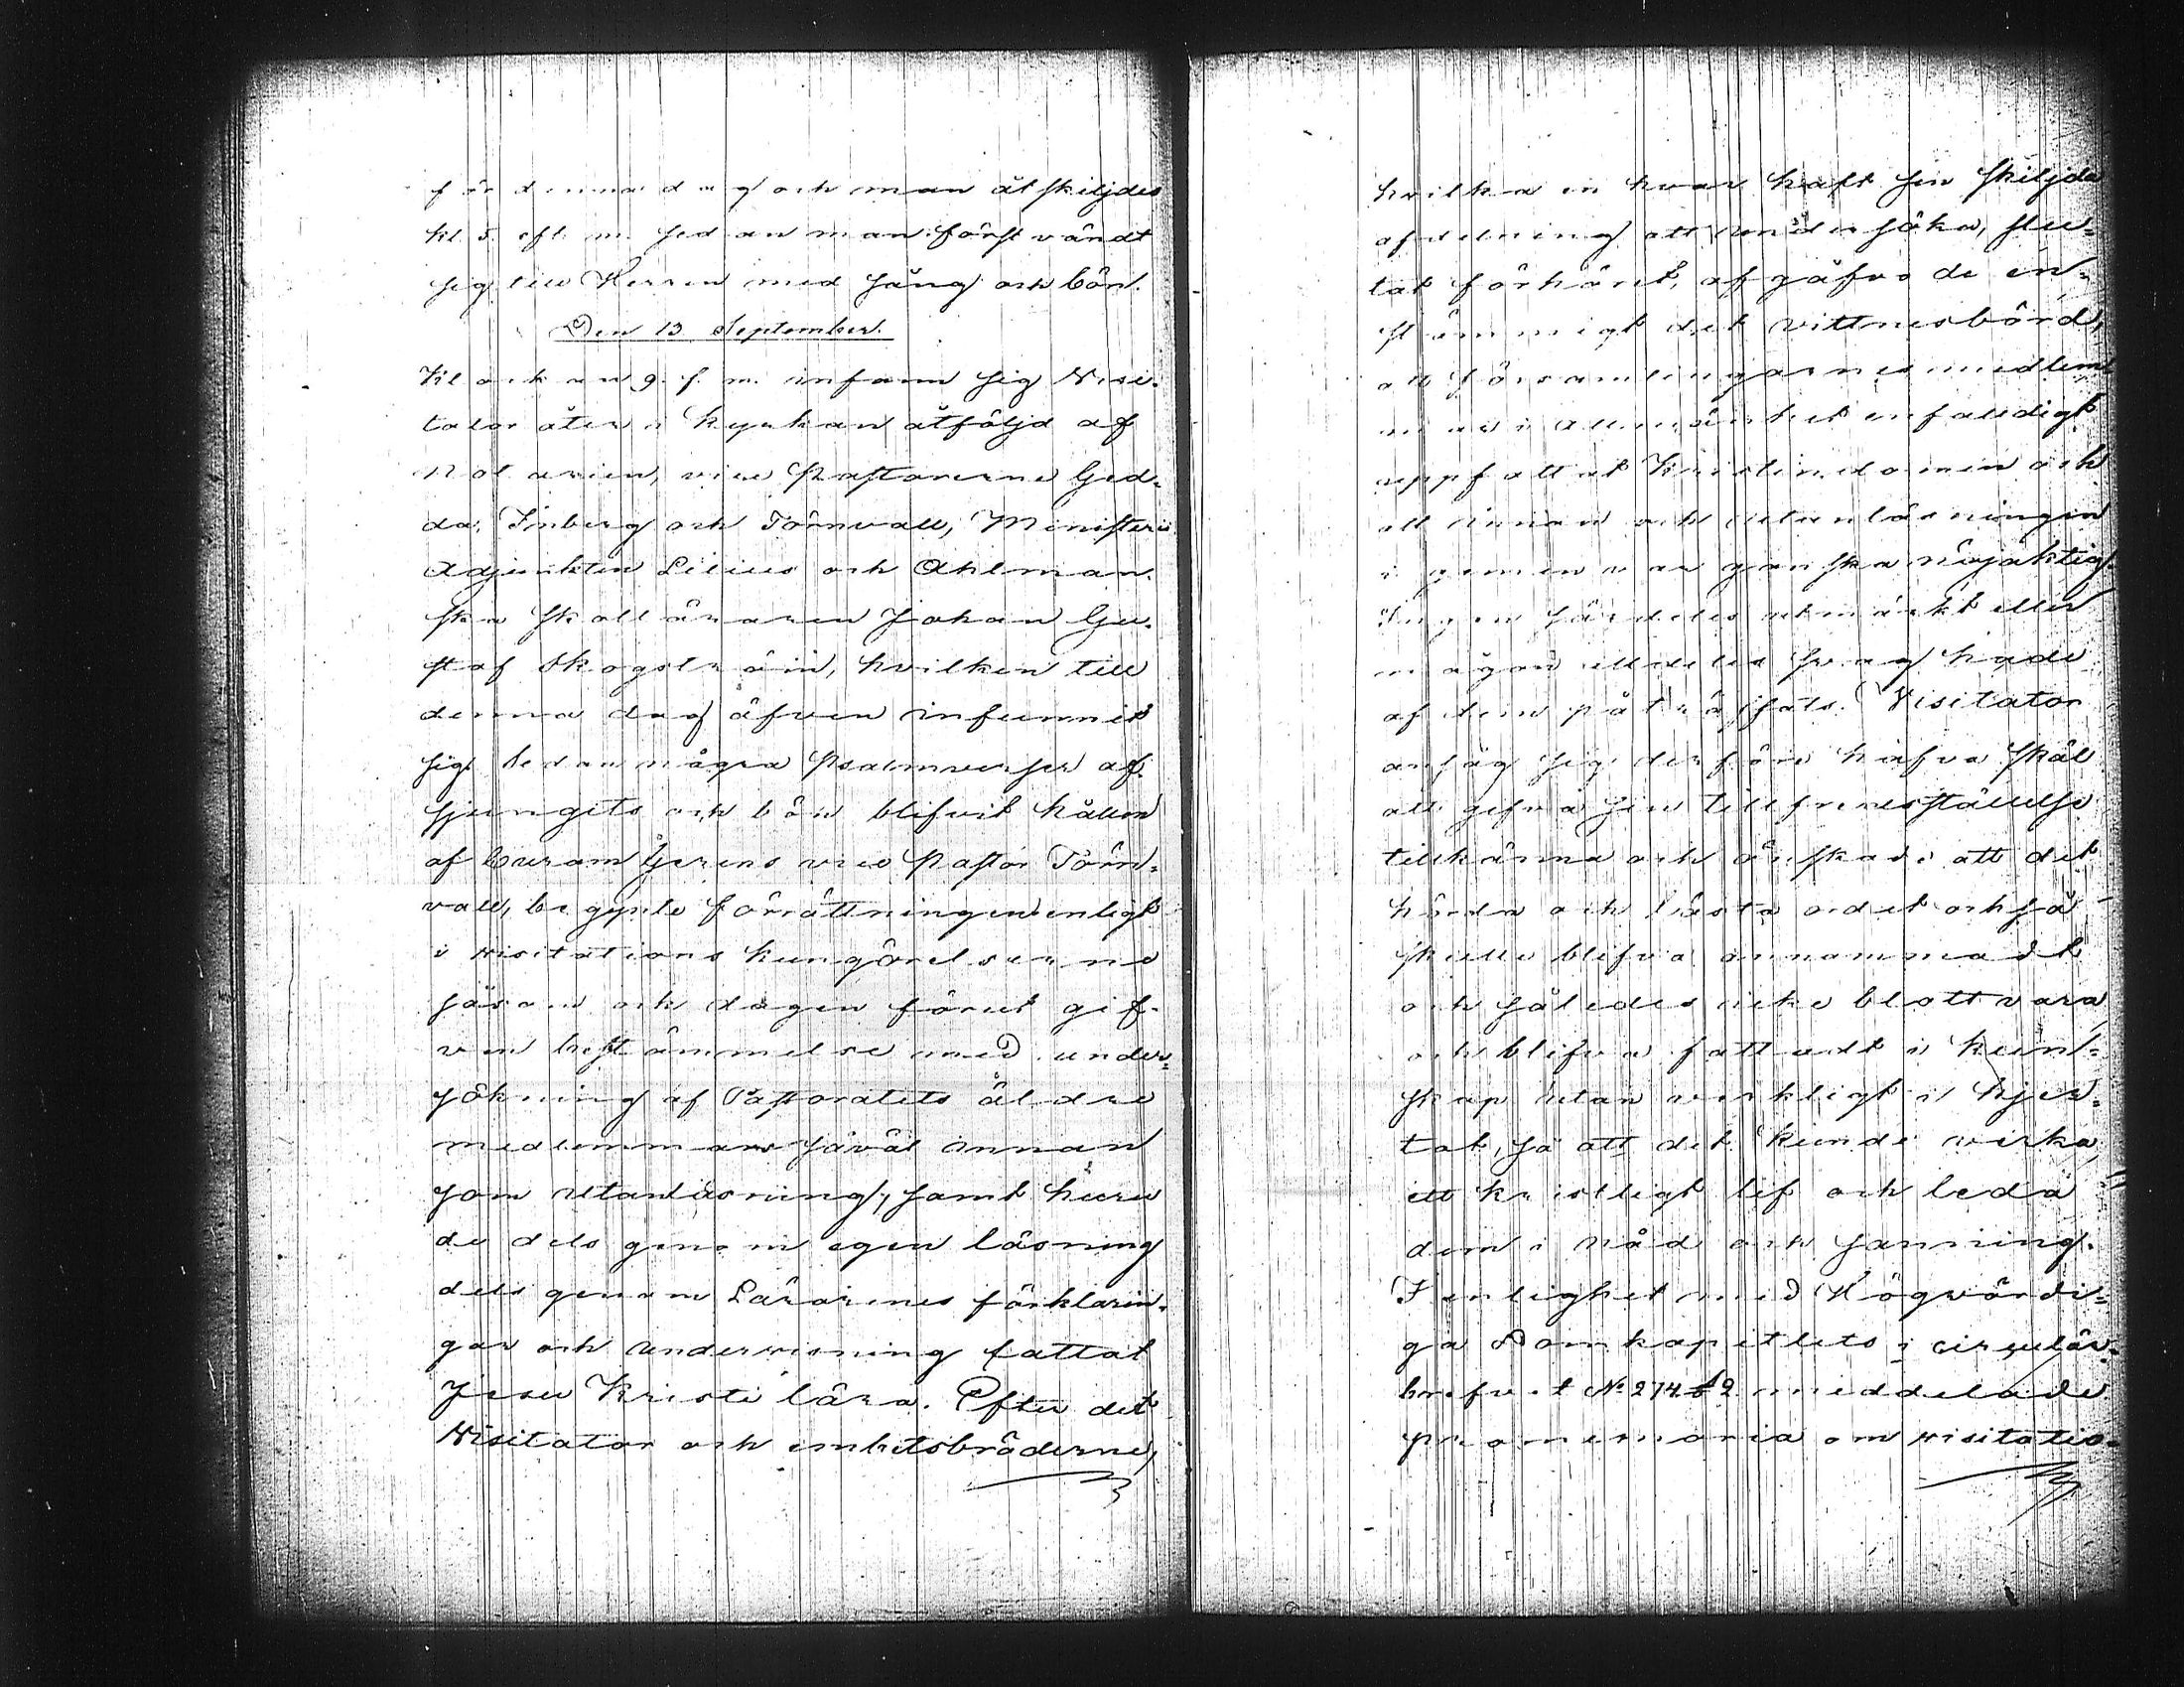 för denna dag och man åtskiljdes
kl. 5. eft. m. sedan man först vändt
sig till Herren med sång och bön.
Den 13 September.
Klockan 9. f. m. infann sig Visi-
tator åter i kyrkan åtföljd af
Notarien, vice Pastorerne Ged-
da, Inberg och Törnvall, Ministerii
Adjunkten Lilius och Ahlman-
ska skolläraren Johan Gu-
staf Skogström, hvilken till
denna dag äfven infunnit
sig. Sedan några psalmverser af-
sjungits och bön blifvit hållen
af Curam Gerens vice Pastor Törn-
vall, begynte förrättningen enligt
i Visitations kungörelserne
såsom och dagen förut gif-
ven bestämmelse med under-
sökning af Pastoratets äldre
medlemmars såväl innan
som utanläsning, samt huru
de dels genom egen läsning
dels genom Lärarenes förklarin-
gar och undervisning fattat
Jesu Kristi lära. Efter det
Visitator och embetsbröderne,
hvilka en hvar haft sin skiljda
afdelning att undersöka, slu-
tat förhöret, afgåfvo de en-
stämmigt det vittnesbörd,
att församlingarnes medlem-
mar i allmänhet enfaldigt
uppfattat Kristendomen och
att innan och utanläsningen
i gemen var ganska nöjaktig.
Ingen särdeles utmärkt eller
någon alldeles svag hade
af dem påträffats. Visitator
ansåg sig derföre hafva skäl
att gifva sin tillfredsställelse
tillkänna och önskade att det
hörda och lästa ordet också
skulle blifva annammadt
och således icke blott vara
och blifva fattadt i kun-
skap utan verkligt i hjer-
tat, så att det kunde verka
ett kristligt lif och leda
dem i nåd och sanning.
I enlighet med Högvördi-
ga Domkapitlets i cirkulär-
brefvet No 274 § 2 meddelade
promemoria om visitatio-